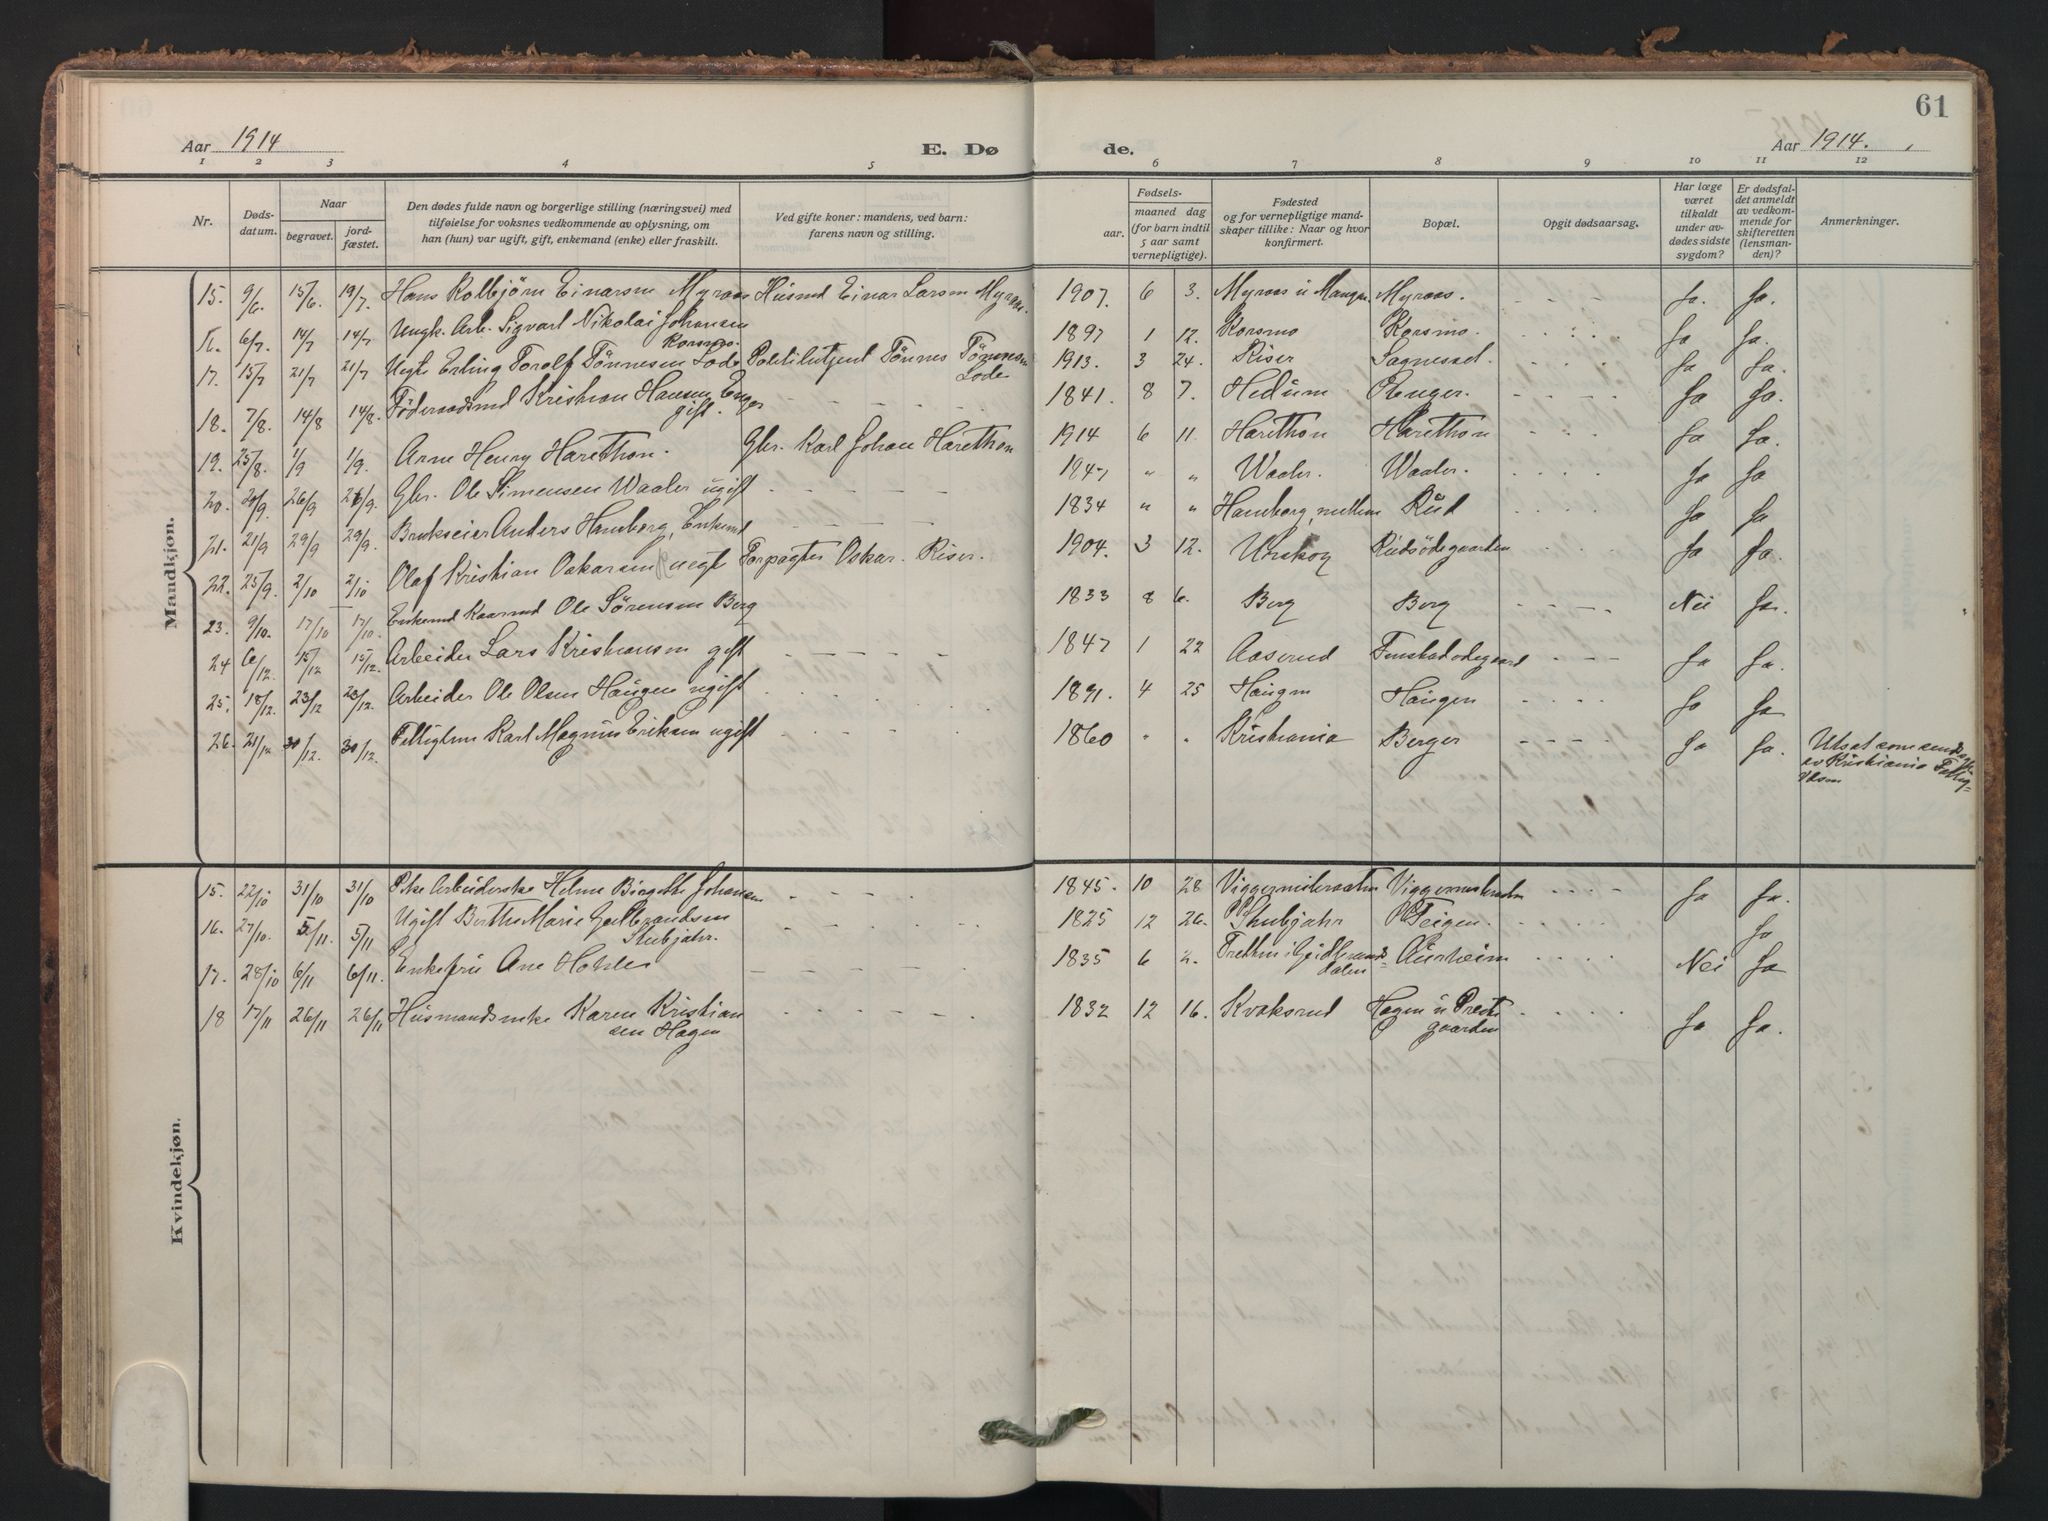 61
Aar 1914
E. Dø
de.
Aar 1914.
1 2 3 4 5 6 7 8 9 10 11 12
Nr.
Døds-
datum.
Naar
begravet.
jord-
fæstet.
Den dødes fulde navn og borgerlige stilling (næringsvei) med
tilføielse for voksnes vedkommende av oplysning, om
han (hun) var ugift, gift, enkemand (enke) eller fraskilt.
Ved gifte koner: mandens, ved barn:
farens navn og stilling.
Fødsels-
aar.
maaned dag
(for barn indtil
5 aar samt
vernepligtige).
Fødested
og for vernepligtige mand-
skaper tillike: Naar og hvor
konfirmert.
Bopæl.
Opgit dødsaarsag.
Har læge
været
tilkaldt
under av-
dødes sidste
sygdom?
Er dødsfal-
det anmeldt
av vedkom-
mende for
skifteretten
(lensman-
den)?
Anmerkninger.
Mandkjøn.
15. 9/6. 15/6. 19/7. Hans Kolbjörn Einarsen Myraas Husmd Einar Larsen Myraas. 1907. 6 3. Myraas u Mangen Myraas. Ja. Ja.
16. 6/7. 14/7 14/7 Ungk. Arb. Sigvart Nikolai Johansen
Korsmo. 1897 1 12. Korsmo Korsmo. Ja Ja.
17. 15/7 21/7 21/7 Ungk Erling Torolf Tönnesen Lode Politibetjent Tönnes Tönnesen
Lode 1913. 3 24. Riser Ja Ja.
18. 7/8. 14/8 14/8. Föderaadsmd Kristian Hansen Enger
gift. 1841. 8 7. Hedum Enger. Ja Ja.
19. 25/8. 1/9 1/9. Arne Henry Harethon. Gbr. Karl Johan Harethon 1914 6 11. Harethon Harethon Ja Ja.
20. 20/9. 26/9 26/9 Gbr. Ole Simensen Waaler ugift 1847 " " Waaler. Waaler. Ja Ja
21. 21/9 29/9 29/9. Brukseier Anders Hamborg, Enkemd 1834 " " Hamborg, Rud Ja Ja
22. 25/9. 2/10 2/10 Olaf Kristian Oskarsen Forpagter Oskar Riser. 1904. 3 12. Urskog Rudsödegaarden Ja Ja
23. 9/10. 17/10 17/10. Enkemd Kaarmd Ole Sörensen Berg 1833 8 6. Berg Berg Nei Ja.
24 6/12. 15/12 15/12. Arbeider Lars Kristiansen gift 1847 1 22 Aaserud Finstadödegaard Ja Ja.
25. 18/12. 23/12 23/12. Arbeider Ole Olsen Haugen ugift 1891. 4 25 Haugen Haugen Ja Ja
26. 21/12 30/12. 30/12. Fattiglem Karl Magnus Eriksen ugift 1860 " " Kristiania Berger Ja Ja. Utsat som sindssyk
av Kristiania Fattig-
Kvindekjøn.
15. 22/10 31/10 31/10 Pike Arbeiderske Helene Birgitte Johansen 1845. 10 28 Ja Ja.
16. 27/10. 5/11. 5/11 Ugift Berthe Marie Gulbrandsen
Stubjahr. 1825 12 26. Stubjahr Teigen. Ja
17. 28/10 6/11 6/11. Enkefru Ane Hohle 1835 6 2. Tretten i Gudbrands-
dalen Aurheim Nei Ja
18 17/11 26/11 26/11 Husmandsenke Karen Kristian
sen Hagen 1832 12 16. Kvaksrud Hagen u Preste
gaarden Ja Ja.